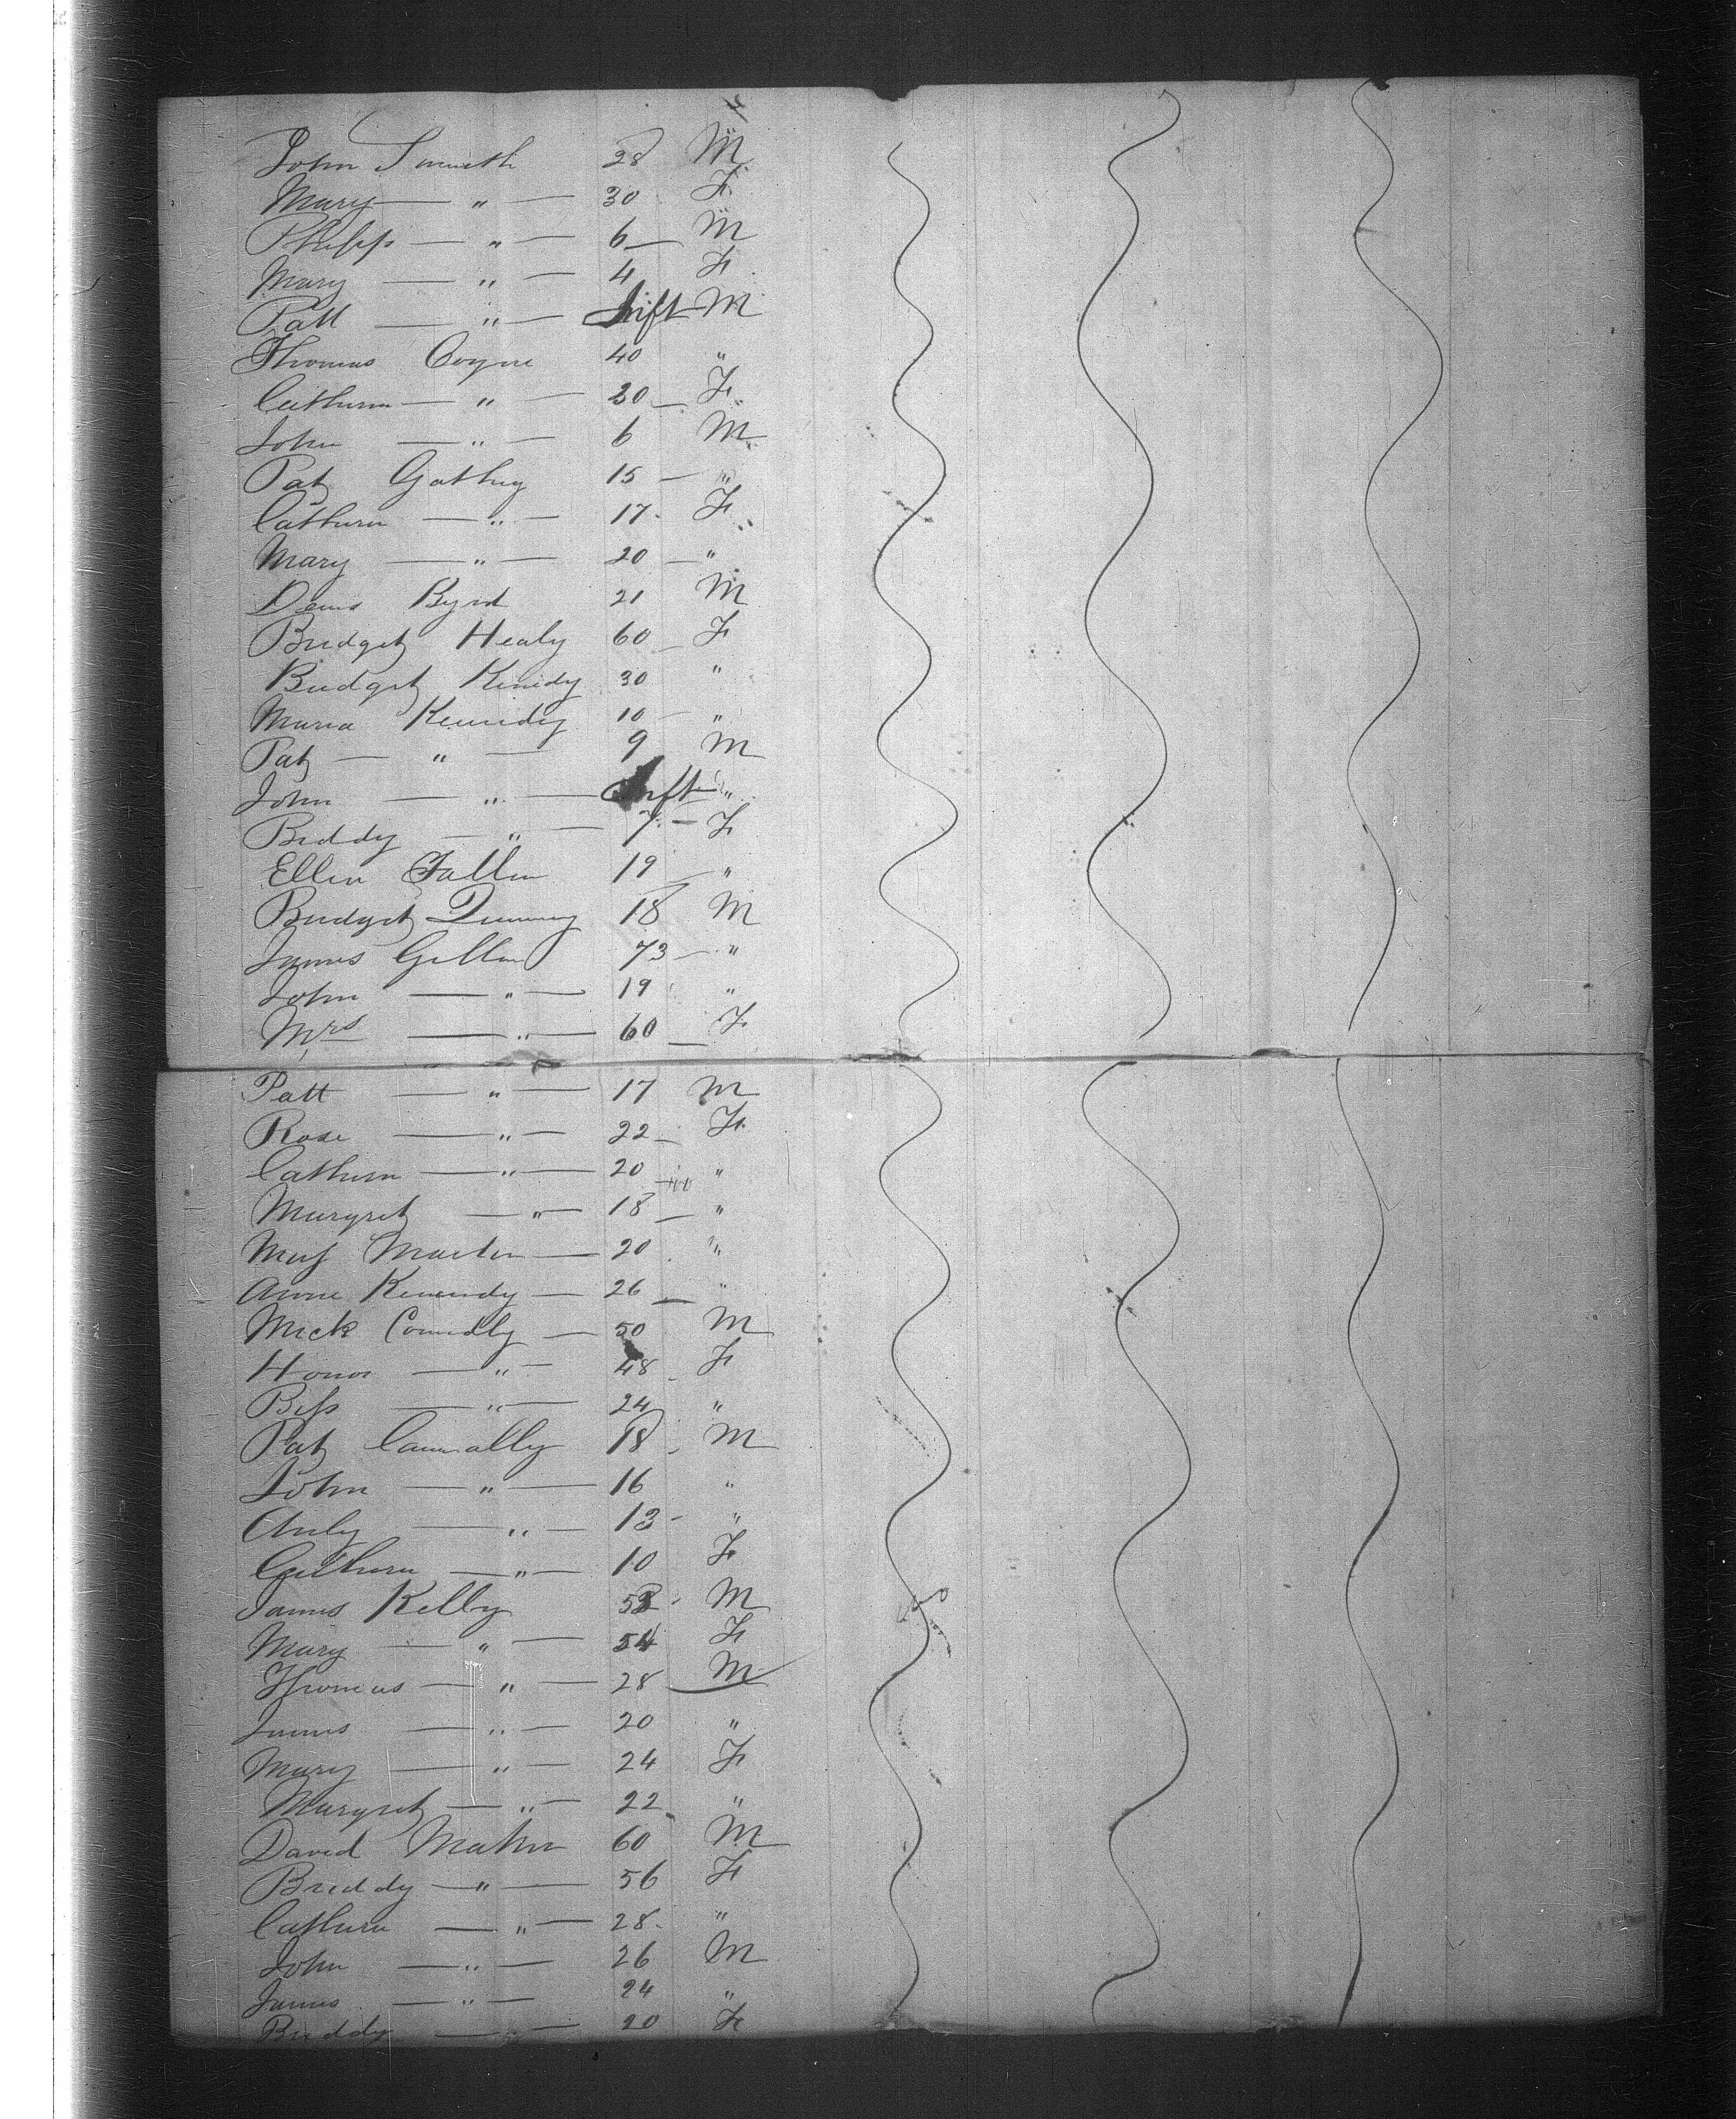 John Smith 28 M
Mary — " — 30 F
Philip — " — 6 M
Mary — " — 4 F
Patt — " — Inft M
Thomas Coyne 40 "
Cathurn — " — 30 F
John — " — 6 M
Pat Gathry 15 — "
Cathurn — " — 17 F
Mary — " — 20 — "
Denis Byrd 21 M
Bridget Healy 60 F
Bridget Kenidy 30 "
Maria Kennidy 10 "
Pat — " — 9 M
John — " — Inft "
Biddy — " — 7 — F
Ellen Fallen 19 — "
Bridget 18 M
James Gillan 73 — "
John — " — 19 "
Mrs — " — 60 F
Patt — " — 17 M
Rose — " — 22 F
Cathurn — " — 20 "
Margret — " — 18 — "
Martin — 20 "
Anne Kennedy — 26 "
Mick Connelly — 50 M
Honor — " — 48 F
Bess — " — 24 "
Pat Connally 18 M
John — " — 16 "
— " — 13 - "
Cathurn — " — 10 F
James Kelly M
Mary — " — 54 F
Thomas — " — 28 M
James — " — 20 "
Mary — " — 24 F
Margret — " — 22 "
David Mahn 60 M
Briddy — " — 56 F
Cathurn — " — 28 "
John — " — 26 M
James — " — 24 "
Briddy — " — 20 F